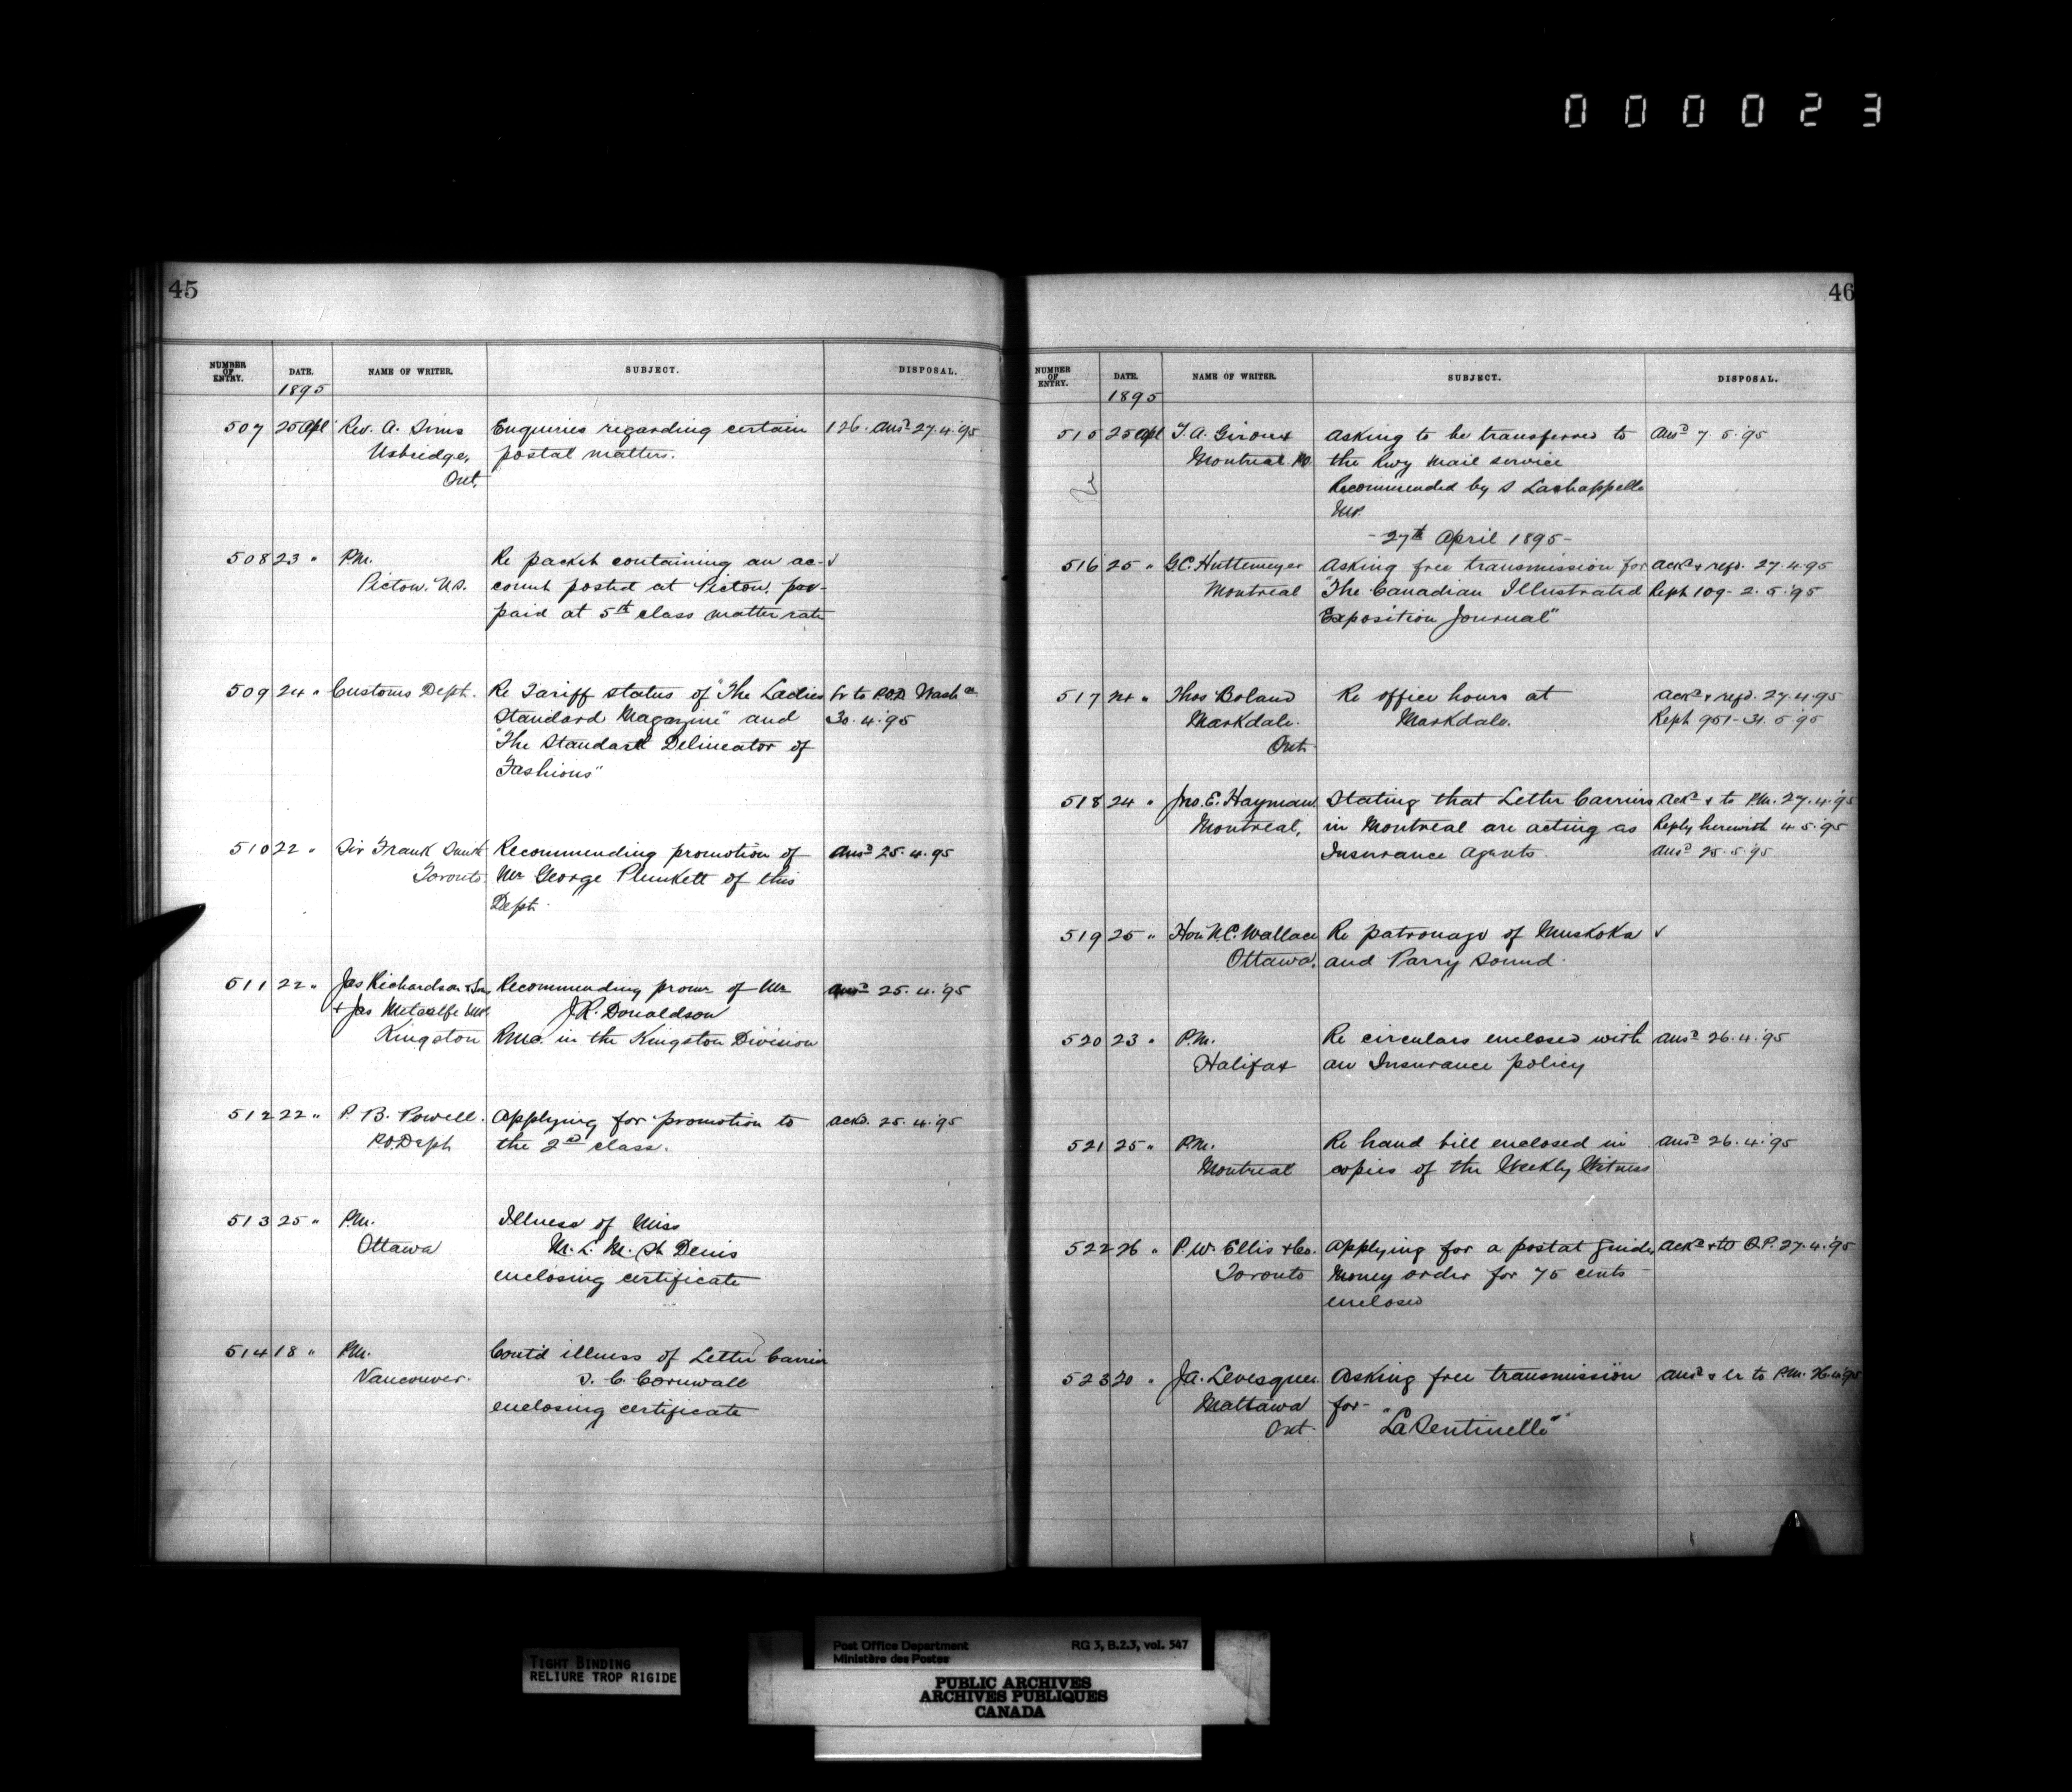 000023
45
NUMBER OF ENTRY. DATE. NAME OF WRITER. SUBJECT. DISPOSAL.
1895
507 25 Apl Rev. A. Sims Enquiries regarding certain 126. Ansd 27.4.'95
Uxbridge, postal matters.
Ont.
508 23 " P.M. Re packet containing an ac- ✓
Pictou. N.S. count posted at Pictou, pre-
paid at 5th class matter rate
509 24 " Customs Dept. Re Tariff status of "The Ladies Lr to P.O.D. Washn
Standard Magazine" and 30.4.'95
"The Standard Delineator of
Fashions"
510 22 " Sir Frank Smith Recommending promotion of Ansd 25.4.95
Toronto. Mr George Plunkett of this
Dept.
511 22 " Jas Richardson & Son Recommending promn of Mr Ansd 25.4.'95
& Jas Metcalfe M.P. J.R. Donaldson
Kingston R.M.C. in the Kingston Division
512 22 " P. B. Powell. Applying for promotion to ackd. 25.4.'95
P.O. Dept the 2nd class.
513 25 " P.M. Illness of Miss
Ottawa M. L. M. St Denis
enclosing certificate
514 18 " P.M. Cont'd illness of Letter Carrier
Vancouver. S. C. Cornwall
enclosing certificate
46
NUMBER OF ENTRY. DATE. NAME OF WRITER. SUBJECT. DISPOSAL.
1895
515 25 Apl T. A. Giroux Asking to be transferred to Ansd 7.5.'95
Montreal P.O. the Rwy Mail service
Recommended by S Lachappelle
M.P.
- 27th April 1895 -
516 25 " G.C. Huttemeyer Asking free transmission for Ackd & refd. 27.4.95
Montreal "The Canadian Illustrated Reph 109 - 2.5.'95
Exposition Journal"
517 24 " Thos Boland Re office hours at Ackd & refd. 27.4.95
Markdale. Markdale. Reph 951 - 31.5.'95
Ont.
518 24 " Jno. E. Hayman Stating that Letter Carriers Ackd & to P.M. 27.4.'95
Montreal, in Montreal are acting as Reply herewith 4.5.'95
Insurance Agents. Ansd 25.5.'95
519 25 " Hon N.C. Wallace Re patronage of Muskoka ✓
Ottawa. and Parry Sound.
520 23 " P.M. Re circulars enclosed with Ansd 26.4.'95
Halifax an Insurance policy
521 25 " P.M. Re hand bill enclosed in Ansd 26.4.'95
Montreal copies of the Weekly Witness
522 26 " P. W. Ellis & Co. Applying for a postal guide, Ackd & to Q.P. 27.4.'95
Toronto Money order for 75 cents
enclosed
523 20 " J.A. Levesque. Asking free transmission Ansd & Lr to P.M. 26.4.'95
Mattawa for -
Ont. "La Sentinelle"
TIGHT BINDING
RELIURE TROP RIGIDE
Post Office Department RG 3, B.2.3, vol. 547
Ministère des Postes
PUBLIC ARCHIVES
ARCHIVES PUBLIQUES
CANADA